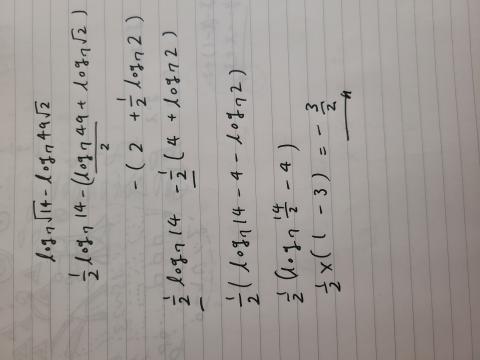 log₇√14 - log₇49√2
½log₇14 - (log₇49 + log₇√2)
2
- (2 + ½log₇2)
½log₇14 - ½(4 + log₇2)
½(log₇14 - 4 - log₇2)
½(log₇14/2 - 4)
½×(1 - 3) = -3/2